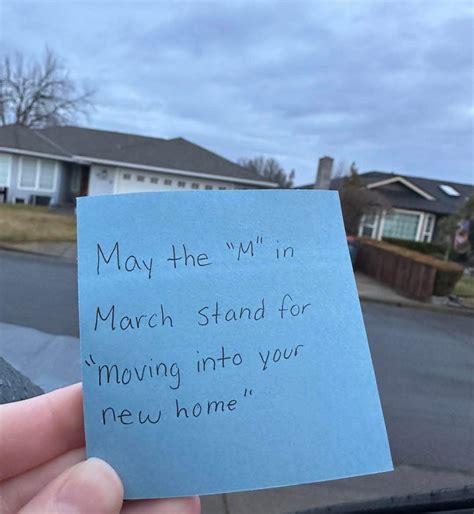 May the "M" in
March stand for
"moving into your
new home"